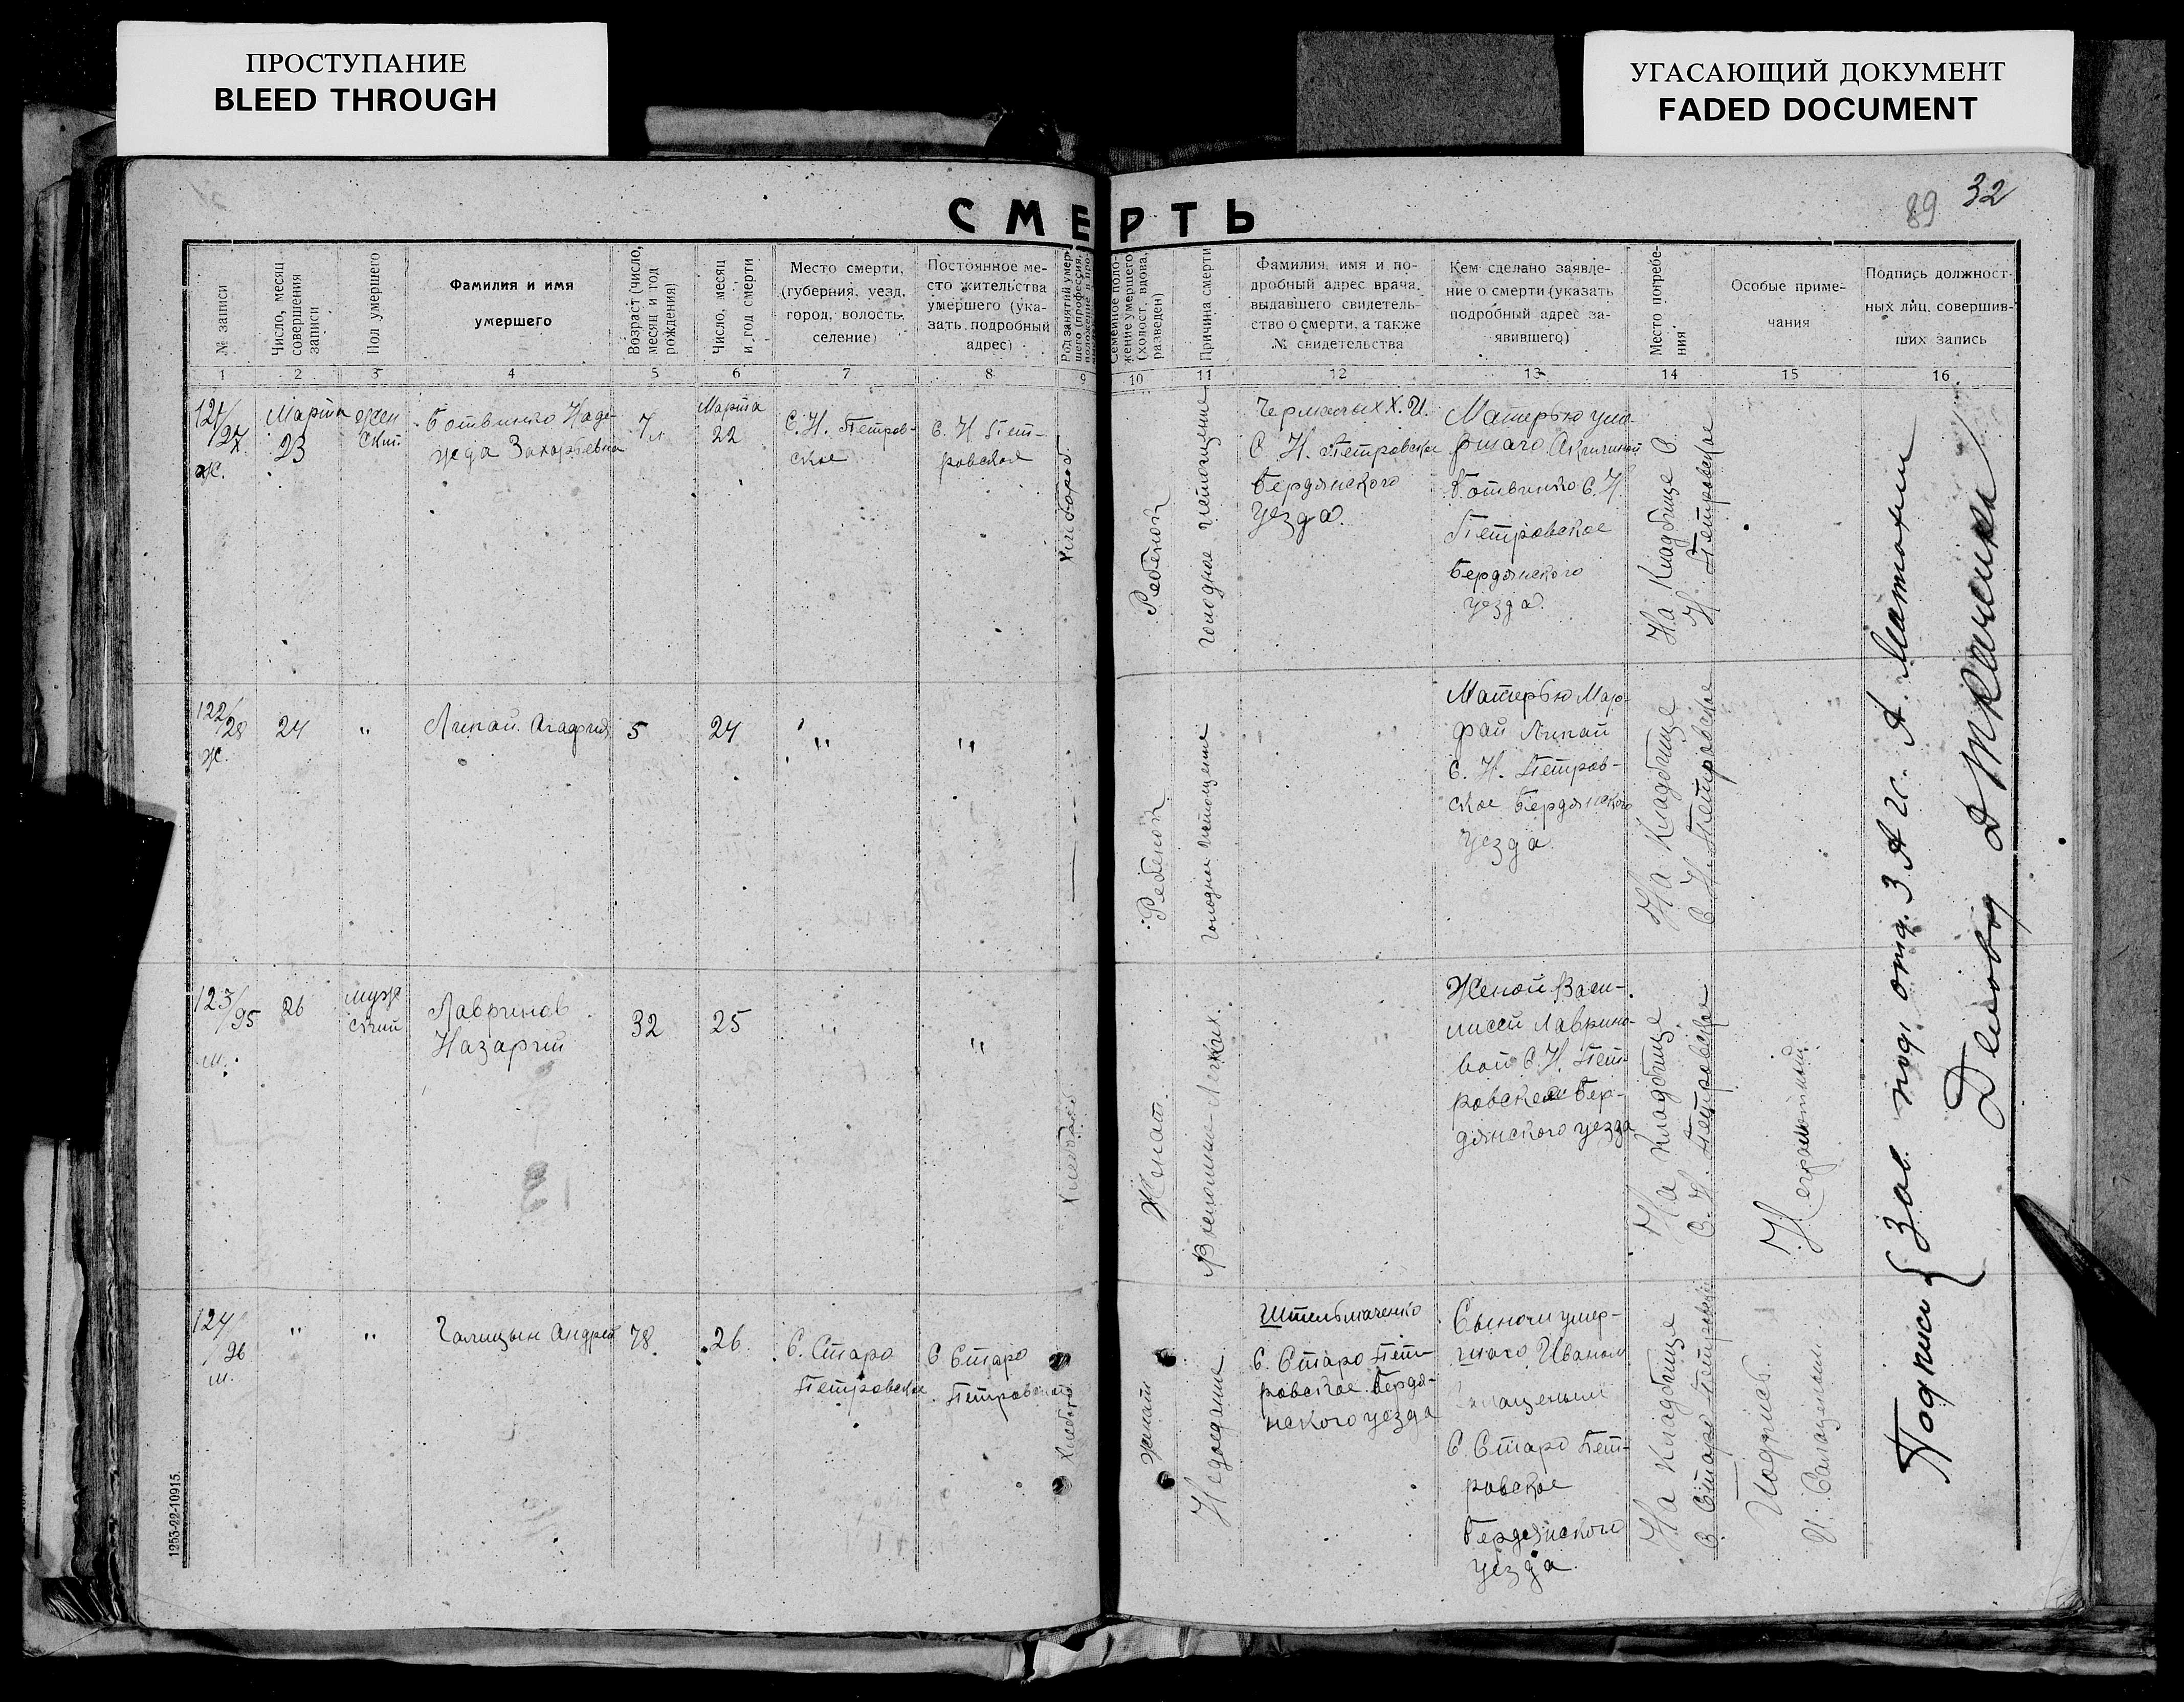 ПРОСТУПАНИЕ
BLEED THROUGH
УГАСАЮЩИЙ ДОКУМЕНТ
FADED DOCUMENT
89 32
СМЕРТЬ
№ записи
Число, месяц
совершения
записи
Пол умершего
Фамилия и имя
умершего
Возраст (число,
месяц и год
рождения)
Число, месяц
и год смерти
Место смерти,
(губерния, уезд,
город, волость,
селение)
Постоянное ме-
сто жительства
умершего (ука-
зать подробный
адрес)
Род занятий умер-
шего (профессия,
Семейное поло-
жение умершего
(холост, вдова,
разведен)
Причина смерти
Фамилия, имя и по-
дробный адрес врача,
выдавшего свидетель-
ство о смерти, а также
№ свидетельства
Кем сделано заявле-
ние о смерти (указать
подробный адрес за-
явившего)
Место погребе-
ния
Особые приме-
чания
Подпись должност-
ных лиц, совершив-
ших запись
1 2 3 4 5 6 7 8 9 10 11 12 13 14 15 16
121/27
ж.
Марта
23
жен
ский
Ботвинко Наде-
жда Захарьевна
7 л
Марта
22
С. Н. Петров-
ское
С. Н Пет-
ровское
хлебороб
Ребенок
Голодное истощение
Х. И.
С. Н. Петровское
Бердянского
уезда.
Матерью уме-
ршаго
Ботвинко С. Н.
Петровское
Бердянского
уезда.
На Кладбище С.
Н. Петровское
122/28
ж.
24
"
Липай Агафия
5
24
"
"
Ребенок
Голодное истощение
Матерью Мар-
фай Липай
С. Н. Петров-
ское Бердянского
уезда.
На Кладбище
С. Н. Петровское
123/95
м.
26
муж
ский
Лавринов
Назарий
32
25
"
"
Хлебороб
Женат.
Воспаление Легких.
Женой Васи-
лисей Лаврино-
вой С. Н. Пет-
ровское Бер-
дянского уезда
На Кладбище
С. Н. Петровское
Неграмотный.
124/96
м.
"
"
Галицын Андрей
78
26
С. Старо
Петровское
С Старо
Петровское
Хлебороб
Женат
Недоедание
С. Старо Пет-
ровское Бердя-
нского уезда
Сыном умер-
шаго Иваном
С. Старо Пет-
ровское
Бердянского
уезда.
На Кладбище
С. Старо Петровское
Подпись
И.
Подписи { Зав. под. отд. ЗАГС. А.
Деловод Д Ткаченко
1253-22-10915.